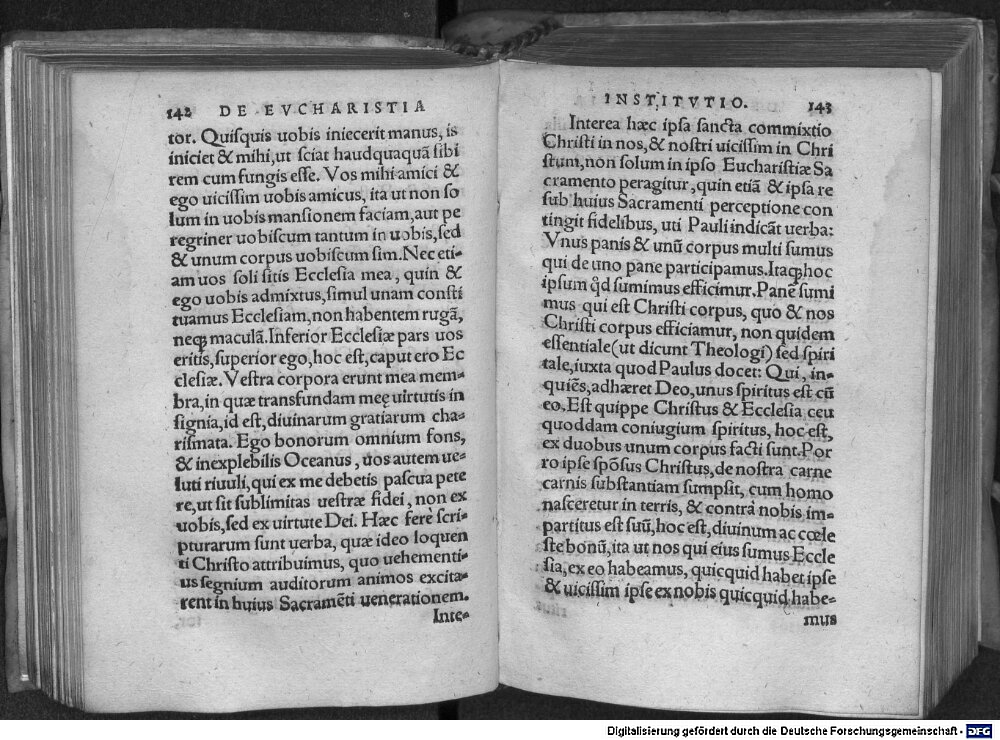 142 DE EVCHARISTIA
tor. Quiſquis uobis iniecerit manus, is
iniciet & mihi, ut ſciat haudquaquã ſibi
rem cum fungis eſſe. Vos mihi amici &
ego uiciſsim uobis amicus, ita ut non ſo
lum in uobis manſionem faciam, aut pe
regriner uobiſcum tantum in uobis, ſed
& unum corpus uobiſcum ſim. Nec eti-
am uos ſoli ſitis Eccleſia mea, quin &
ego uobis admixtus, ſimul unam conſti
tuamus Eccleſiam, non habentem rugã,
neqꝫ maculã. Inferior Eccleſiæ pars uos
eritis, ſuperior ego, hoc eſt, caput ero Ec
cleſiæ. Veſtra corpora erunt mea mem-
bra, in quæ transfundam meę uirtutis in
ſignia, id eſt, diuinarum gratiarum cha-
riſmata. Ego bonorum omnium fons,
& inexplebilis Oceanus, uos autem ue-
luti riuuli, qui ex me debetis paſcua pete
re, ut ſit ſublimitas ueſtræ fidei, non ex
uobis, ſed ex uirtute Dei. Hæc ferè ſcri-
pturarum ſunt uerba, quæ ideo loquen
ti Chriſto attribuimus, quo uehementi-
us ſegnium auditorum animos excita-
rent in huius Sacramẽti uenerationem.
Inte-
INSTITVTIO. 143
Interea hæc ipſa ſancta commixtio
Chriſti in nos, & noſtri uiciſsim in Chri
ſtum, non ſolum in ipſo Euchariſtiæ Sa
cramento peragitur, quin etiã & ipſa re
ſub huius Sacramenti perceptione con
tingit fidelibus, uti Pauli indicãt uerba:
Vnus panis & unũ corpus multi ſumus
qui de uno pane participamus. Itaqꝫ hoc
ipſum qd̃ ſumimus efficimur. Panẽ ſumi
mus qui eſt Chriſti corpus, quo & nos
Chriſti corpus efficiamur, non quidem
eſſentiale (ut dicunt Theologi) ſed ſpiri
tale, iuxta quod Paulus docet: Qui, in-
quiẽs, adhæret Deo, unus ſpiritus eſt cũ
eo. Eſt quippe Chriſtus & Eccleſia ceu
quoddam coniugium ſpiritus, hoc eſt,
ex duobus unum corpus facti ſunt. Por
ro ipſe ſpõſus Chriſtus, de noſtra carne
carnis ſubſtantiam ſumpſit, cum homo
naſceretur in terris, & contrà nobis im-
partitus eſt ſuũ, hoc eſt, diuinum ac cœle
ſte bonũ, ita ut nos qui eius ſumus Eccle
ſia, ex eo habeamus, quicquid habet ipſe
& uiciſsim ipſe ex nobis quicquid habe-
mus
Digitalisierung gefördert durch die Deutsche Forschungsgemeinschaft - DFG